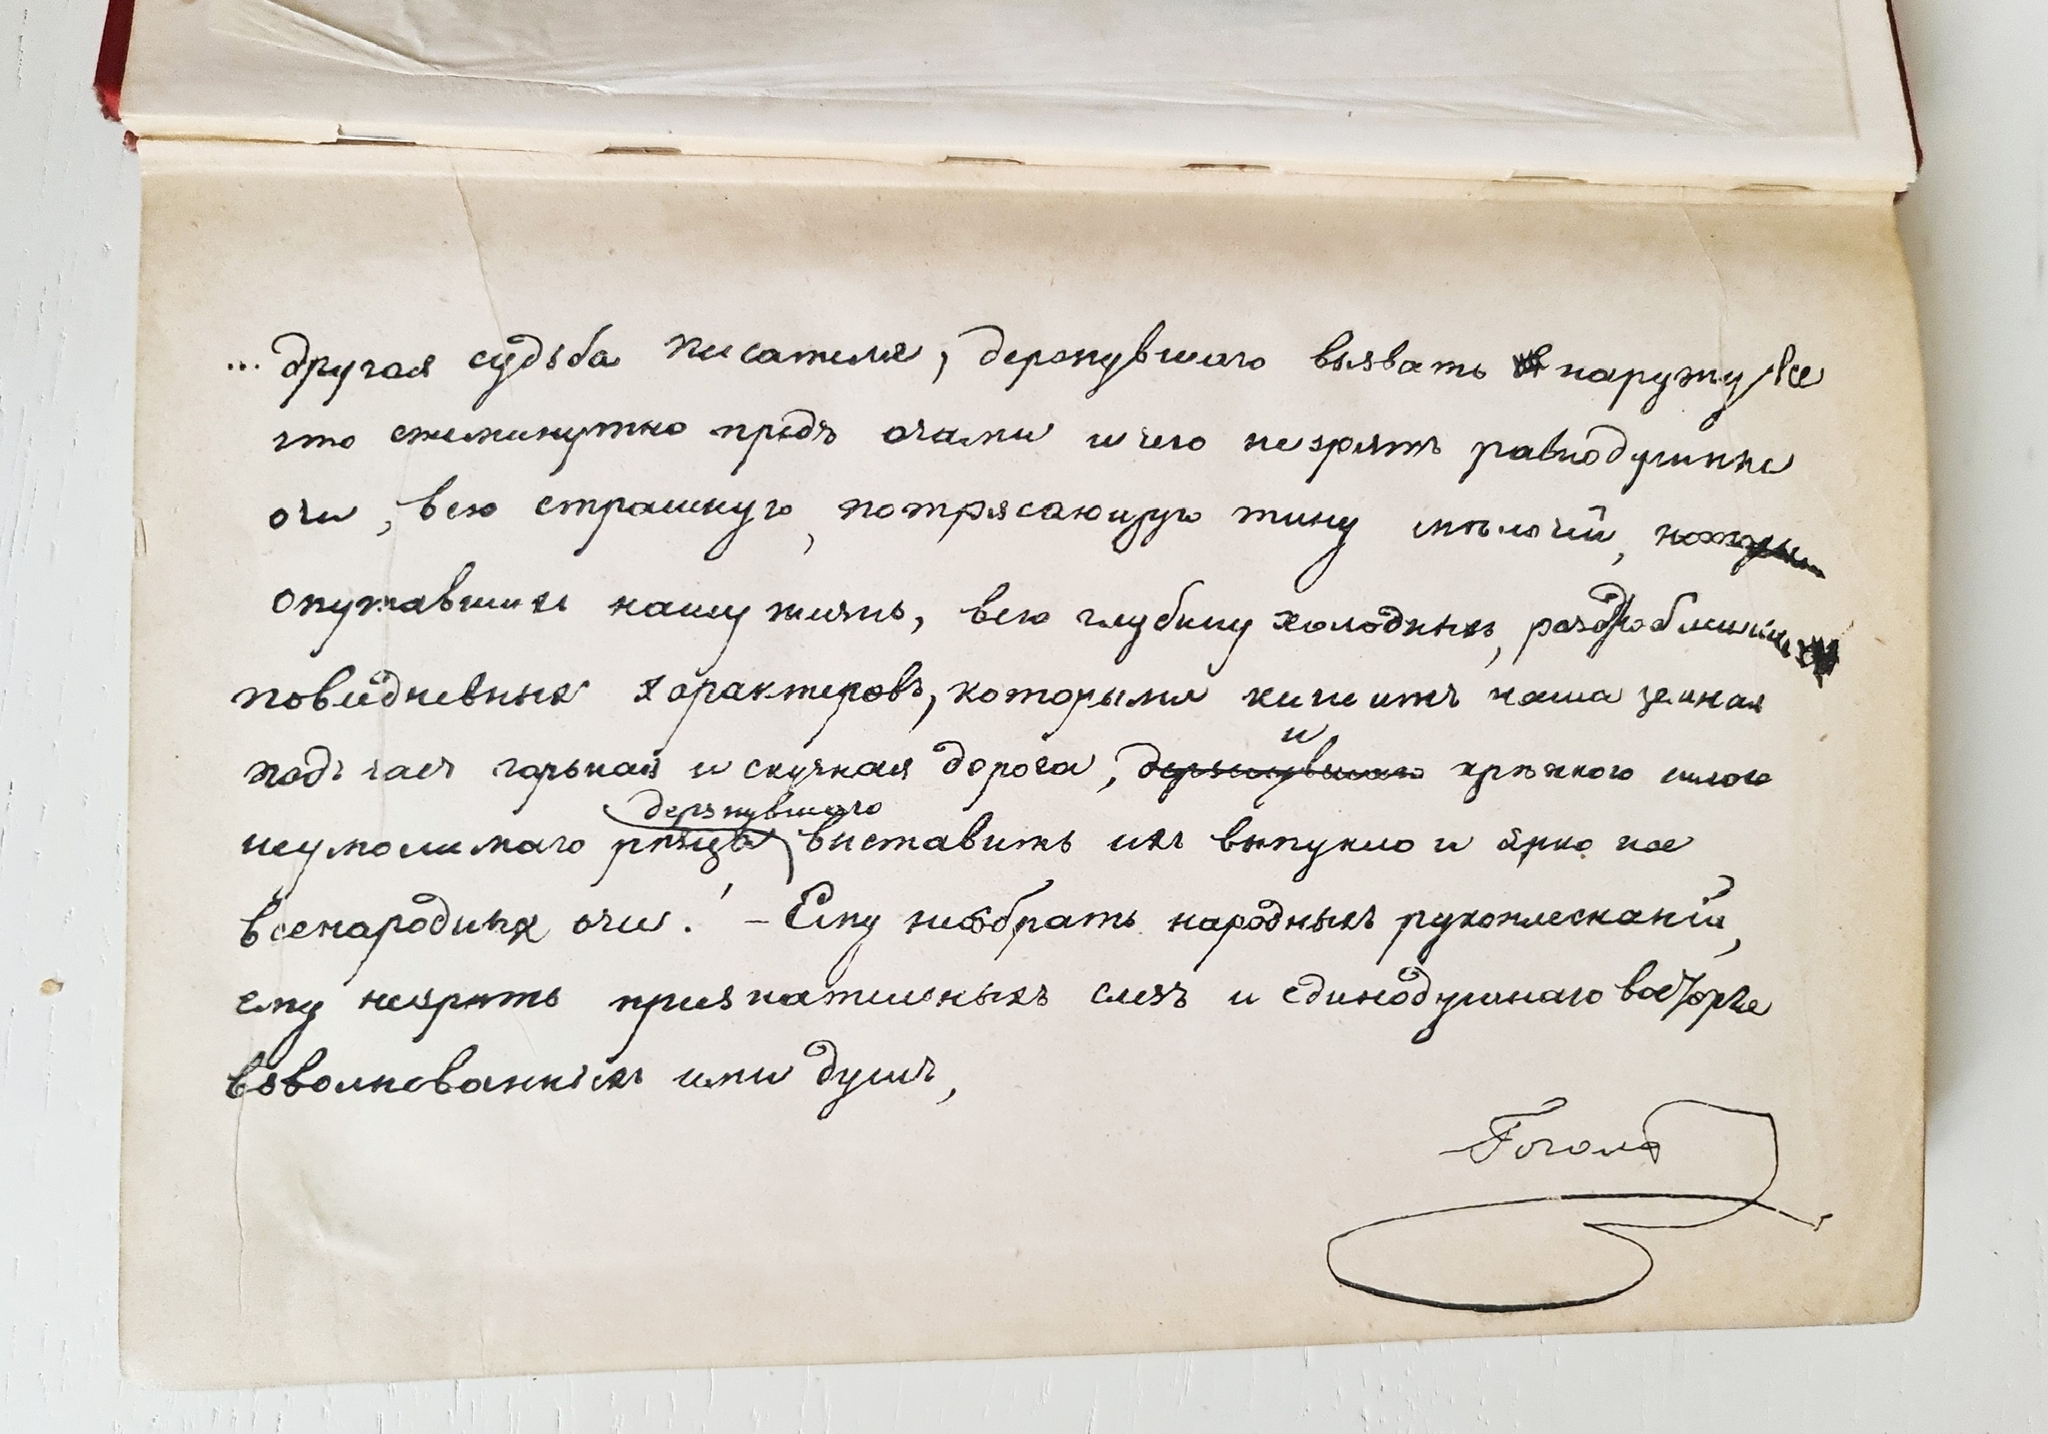 ... другая судьба писателя, дерзнувшаго вызвать наружу все
что ежеминутно предъ очами и чего незрятъ равнодушные
очи, всю страшную, потрясающую тину мѣлочей, которы
опутавшихъ нашу жизнь, всю глубину холодныхъ, раздробленныхъ
повседневныхъ характеровъ, которыми кишитъ наша земная
подъ часъ горькая и скучная дорога, дерзнувшаго и крѣпкого силою
неумолимаго рѣзца дерзнувшаго выставить ихъ выпукло и ярко на
всенародныя очи! – Ему несобрать народныхъ рукоплесканій,
ему незрѣть признательныхъ слезъ и единодушнаго восторга
взволнованныхъ ими душъ,
Гоголь